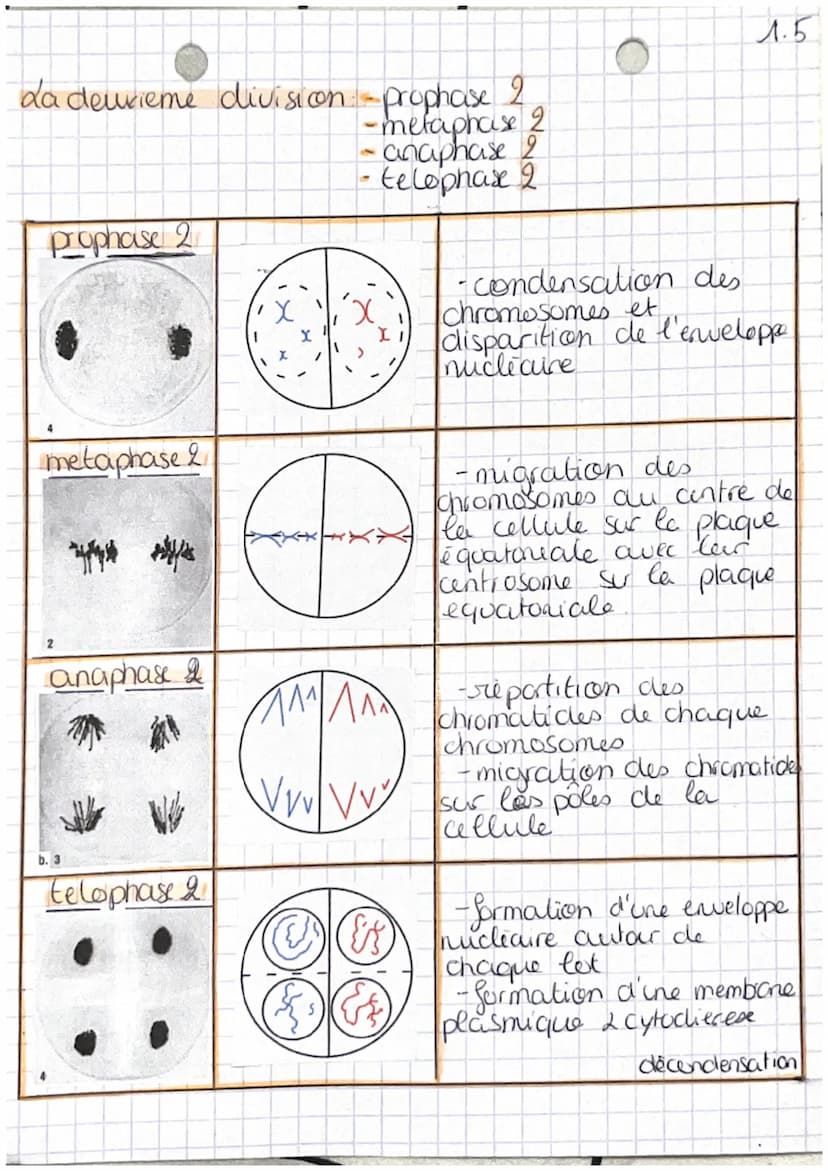 1.5
La deuxieme division: - prophase 2
- metaphase 2
- anaphase 2
- telophase 2
prophase 2
4
- condensation des
chromosomes et
disparition de l'enveloppe
nucléaire
metaphase 2
2
- migration des
chromosomes au centre de
la cellule sur la plaque
équatoriale avec leur
centrosome sur la plaque
equatoriale.
anaphase 2
b. 3
- répartition des
chromatides de chaque
chromosomes
- migration des chromatide
sur les pôles de la
cellule
telophase 2
4
- formation d'une enveloppe
nucléaire autour de
chaque lot
- formation d'une membrane
plasmique 2 cytodierese
décondensation